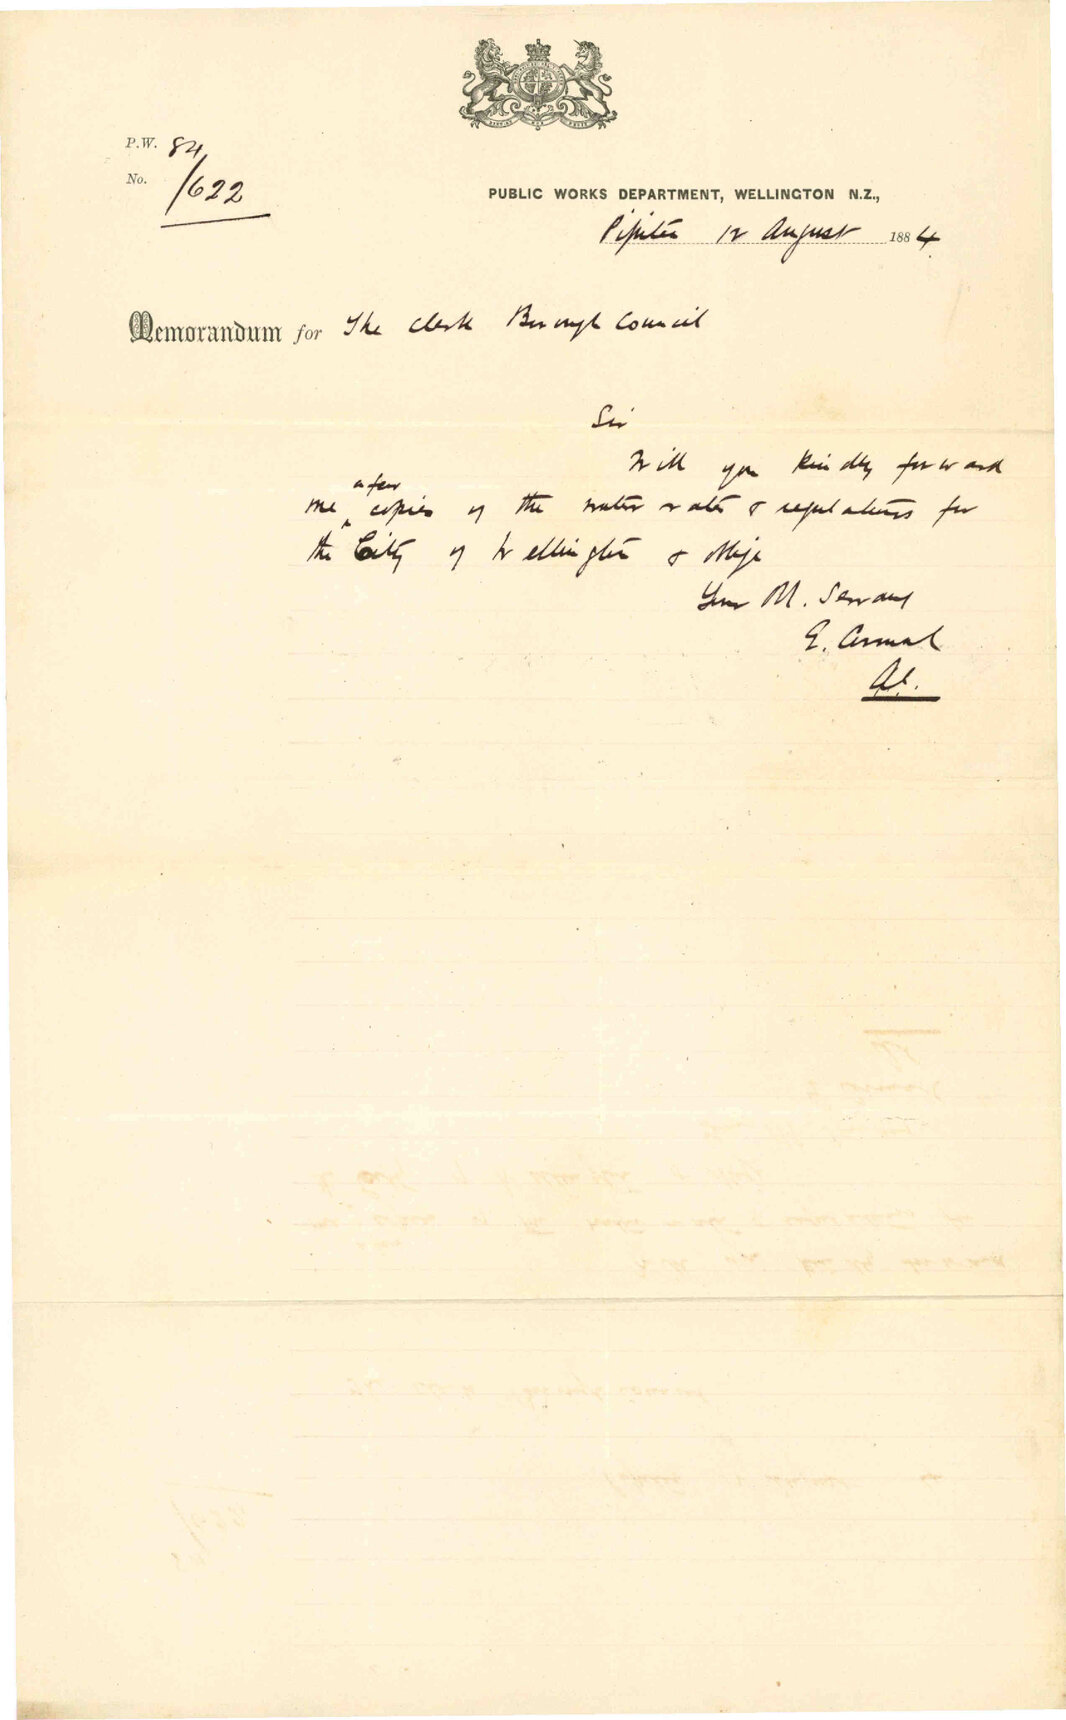 P.W. 84
No. /622
PUBLIC WORKS DEPARTMENT, WELLINGTON N.Z.,
Pipitea 12 August 1884
Memorandum for The Clerk Borough Council
Sir
Will you kindly forward
a few
me ^ copies of the water rates & regulations for
the City of Wellington & oblige
Your Servant
E.